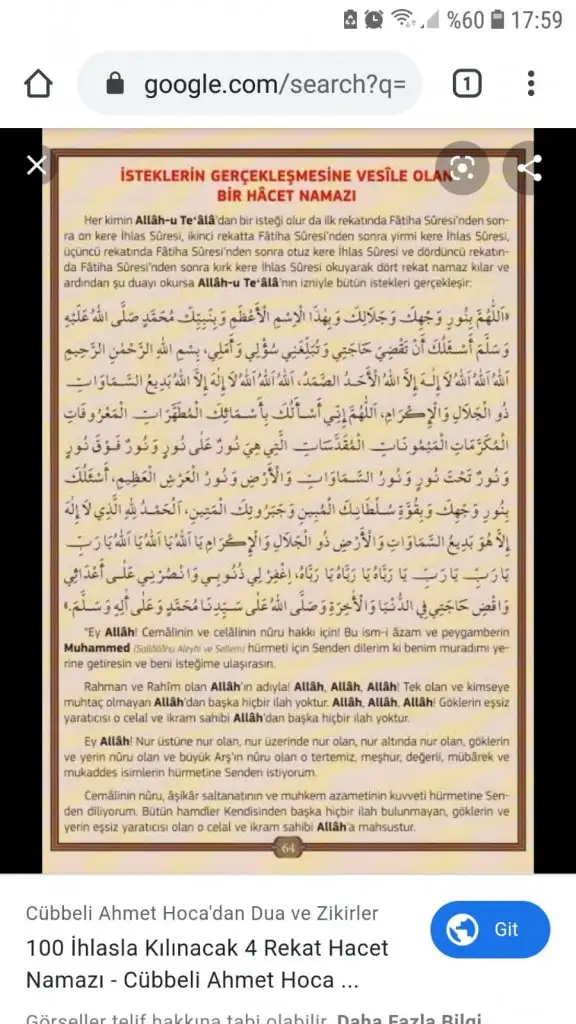 %60 17:59
google.com/search?q=
1
İSTEKLERİN GERÇEKLEŞMESİNE VESÎLE OLAN
BİR HÂCET NAMAZI
Her kimin Allâh-u Te‘âlâ'dan bir isteği olur da ilk rekatında Fâtiha Sûresi'nden son-
ra on kere İhlas Sûresi, ikinci rekatta Fâtiha Sûresi'nden sonra yirmi kere İhlas Sûresi,
üçüncü rekatında Fâtiha Sûresi'nden sonra otuz kere İhlas Sûresi ve dördüncü rekatın-
da Fâtiha Sûresi'nden sonra kırk kere İhlas Sûresi okuyarak dört rekat namaz kılar ve
ardından şu duayı okursa Allâh-u Te‘âlâ'nın izniyle bütün istekleri gerçekleşir:
«اَللّٰهُمَّ بِنُورِ وَجْهِكَ وَجَلَالِكَ وَبِهٰذَا الْاِسْمِ الْأَعْظَمِ وَبِنَبِيِّكَ مُحَمَّدٍ صَلَّى اللّٰهُ عَلَيْهِ
وَسَلَّمَ أَسْئَلُكَ أَنْ تَقْضِيَ حَاجَتِي وَتُبَلِّغَنِي سُؤْلِي وَأَمَلِي، بِسْمِ اللّٰهِ الرَّحْمٰنِ الرَّحِيمِ
اَللّٰهُ اَللّٰهُ اَللّٰهُ لَا إِلٰهَ إِلَّا اللّٰهُ الْأَحَدُ الصَّمَدُ، اَللّٰهُ اَللّٰهُ اَللّٰهُ لَا إِلٰهَ إِلَّا اللّٰهُ بَدِيعُ السَّمَاوَاتِ
ذُو الْجَلَالِ وَالْإِكْرَامِ، اَللّٰهُمَّ إِنِّي أَسْأَلُكَ بِأَسْمَائِكَ الْمُطَهَّرَاتِ الْمَعْرُوفَاتِ
الْمُكَرَّمَاتِ الْمَيْمُونَاتِ الْمُقَدَّسَاتِ الَّتِي هِيَ نُورٌ عَلَى نُورٍ وَنُورٌ فَوْقَ نُورٍ
وَنُورٌ تَحْتَ نُورٍ وَنُورُ السَّمَاوَاتِ وَالْأَرْضِ وَنُورُ الْعَرْشِ الْعَظِيمِ، أَسْئَلُكَ
بِنُورِ وَجْهِكَ وَبِقُوَّةِ سُلْطَانِكَ الْمُبِينِ وَجَبَرُوتِكَ الْمَتِينِ، اَلْحَمْدُ لِلّٰهِ الَّذِي لَا إِلٰهَ
إِلَّا هُوَ بَدِيعُ السَّمَاوَاتِ وَالْأَرْضِ ذُو الْجَلَالِ وَالْإِكْرَامِ يَا اَللّٰهُ يَا اَللّٰهُ يَا اَللّٰهُ يَا رَبِّ
يَا رَبِّ يَا رَبِّ يَا رَبَّاهُ يَا رَبَّاهُ يَا رَبَّاهُ، اِغْفِرْ لِي ذُنُوبِي وَانْصُرْنِي عَلَى أَعْدَائِي
وَاقْضِ حَاجَتِي فِي الدُّنْيَا وَالْأٰخِرَةِ وَصَلَّى اللّٰهُ عَلَى سَيِّدِنَا مُحَمَّدٍ وَعَلَى أٰلِهِ وَسَلَّمَ.»
"Ey Allâh! Cemâlinin ve celâlinin nûru hakkı için! Bu ism-i âzam ve peygamberin
Muhammed (Sallâllâhu Aleyhi ve Sellem) hürmeti için Senden dilerim ki benim muradımı ye-
rine getiresin ve beni isteğime ulaşırasın.
Rahman ve Rahîm olan Allâh'ın adıyla! Allâh, Allâh, Allâh! Tek olan ve kimseye
muhtaç olmayan Allâh'dan başka hiçbir ilah yoktur. Allâh, Allâh, Allâh! Göklerin eşsiz
yaratıcısı o celal ve ikram sahibi Allâh'dan başka hiçbir ilah yoktur.
Ey Allâh! Nur üstüne nur olan, nur üzerinde nur olan, nur altında nur olan, göklerin
ve yerin nûru olan ve büyük Arş'ın nûru olan o tertemiz, meşhur, değerli, mübârek ve
mukaddes isimlerin hürmetine Senden istiyorum.
Cemâlinin nûru, âşikâr saltanatının ve muhkem azametinin kuvveti hürmetine Sen-
den diliyorum. Bütün hamdler Kendisinden başka hiçbir ilah bulunmayan, göklerin ve
yerin eşsiz yaratıcısı olan o celal ve ikram sahibi Allâh'a mahsustur.
64
Cübbeli Ahmet Hoca'dan Dua ve Zikirler
100 İhlasla Kılınacak 4 Rekat Hacet
Namazı - Cübbeli Ahmet Hoca ...
Git
Görseller telif hakkına tabi olabilir. Daha Fazla Bilgi